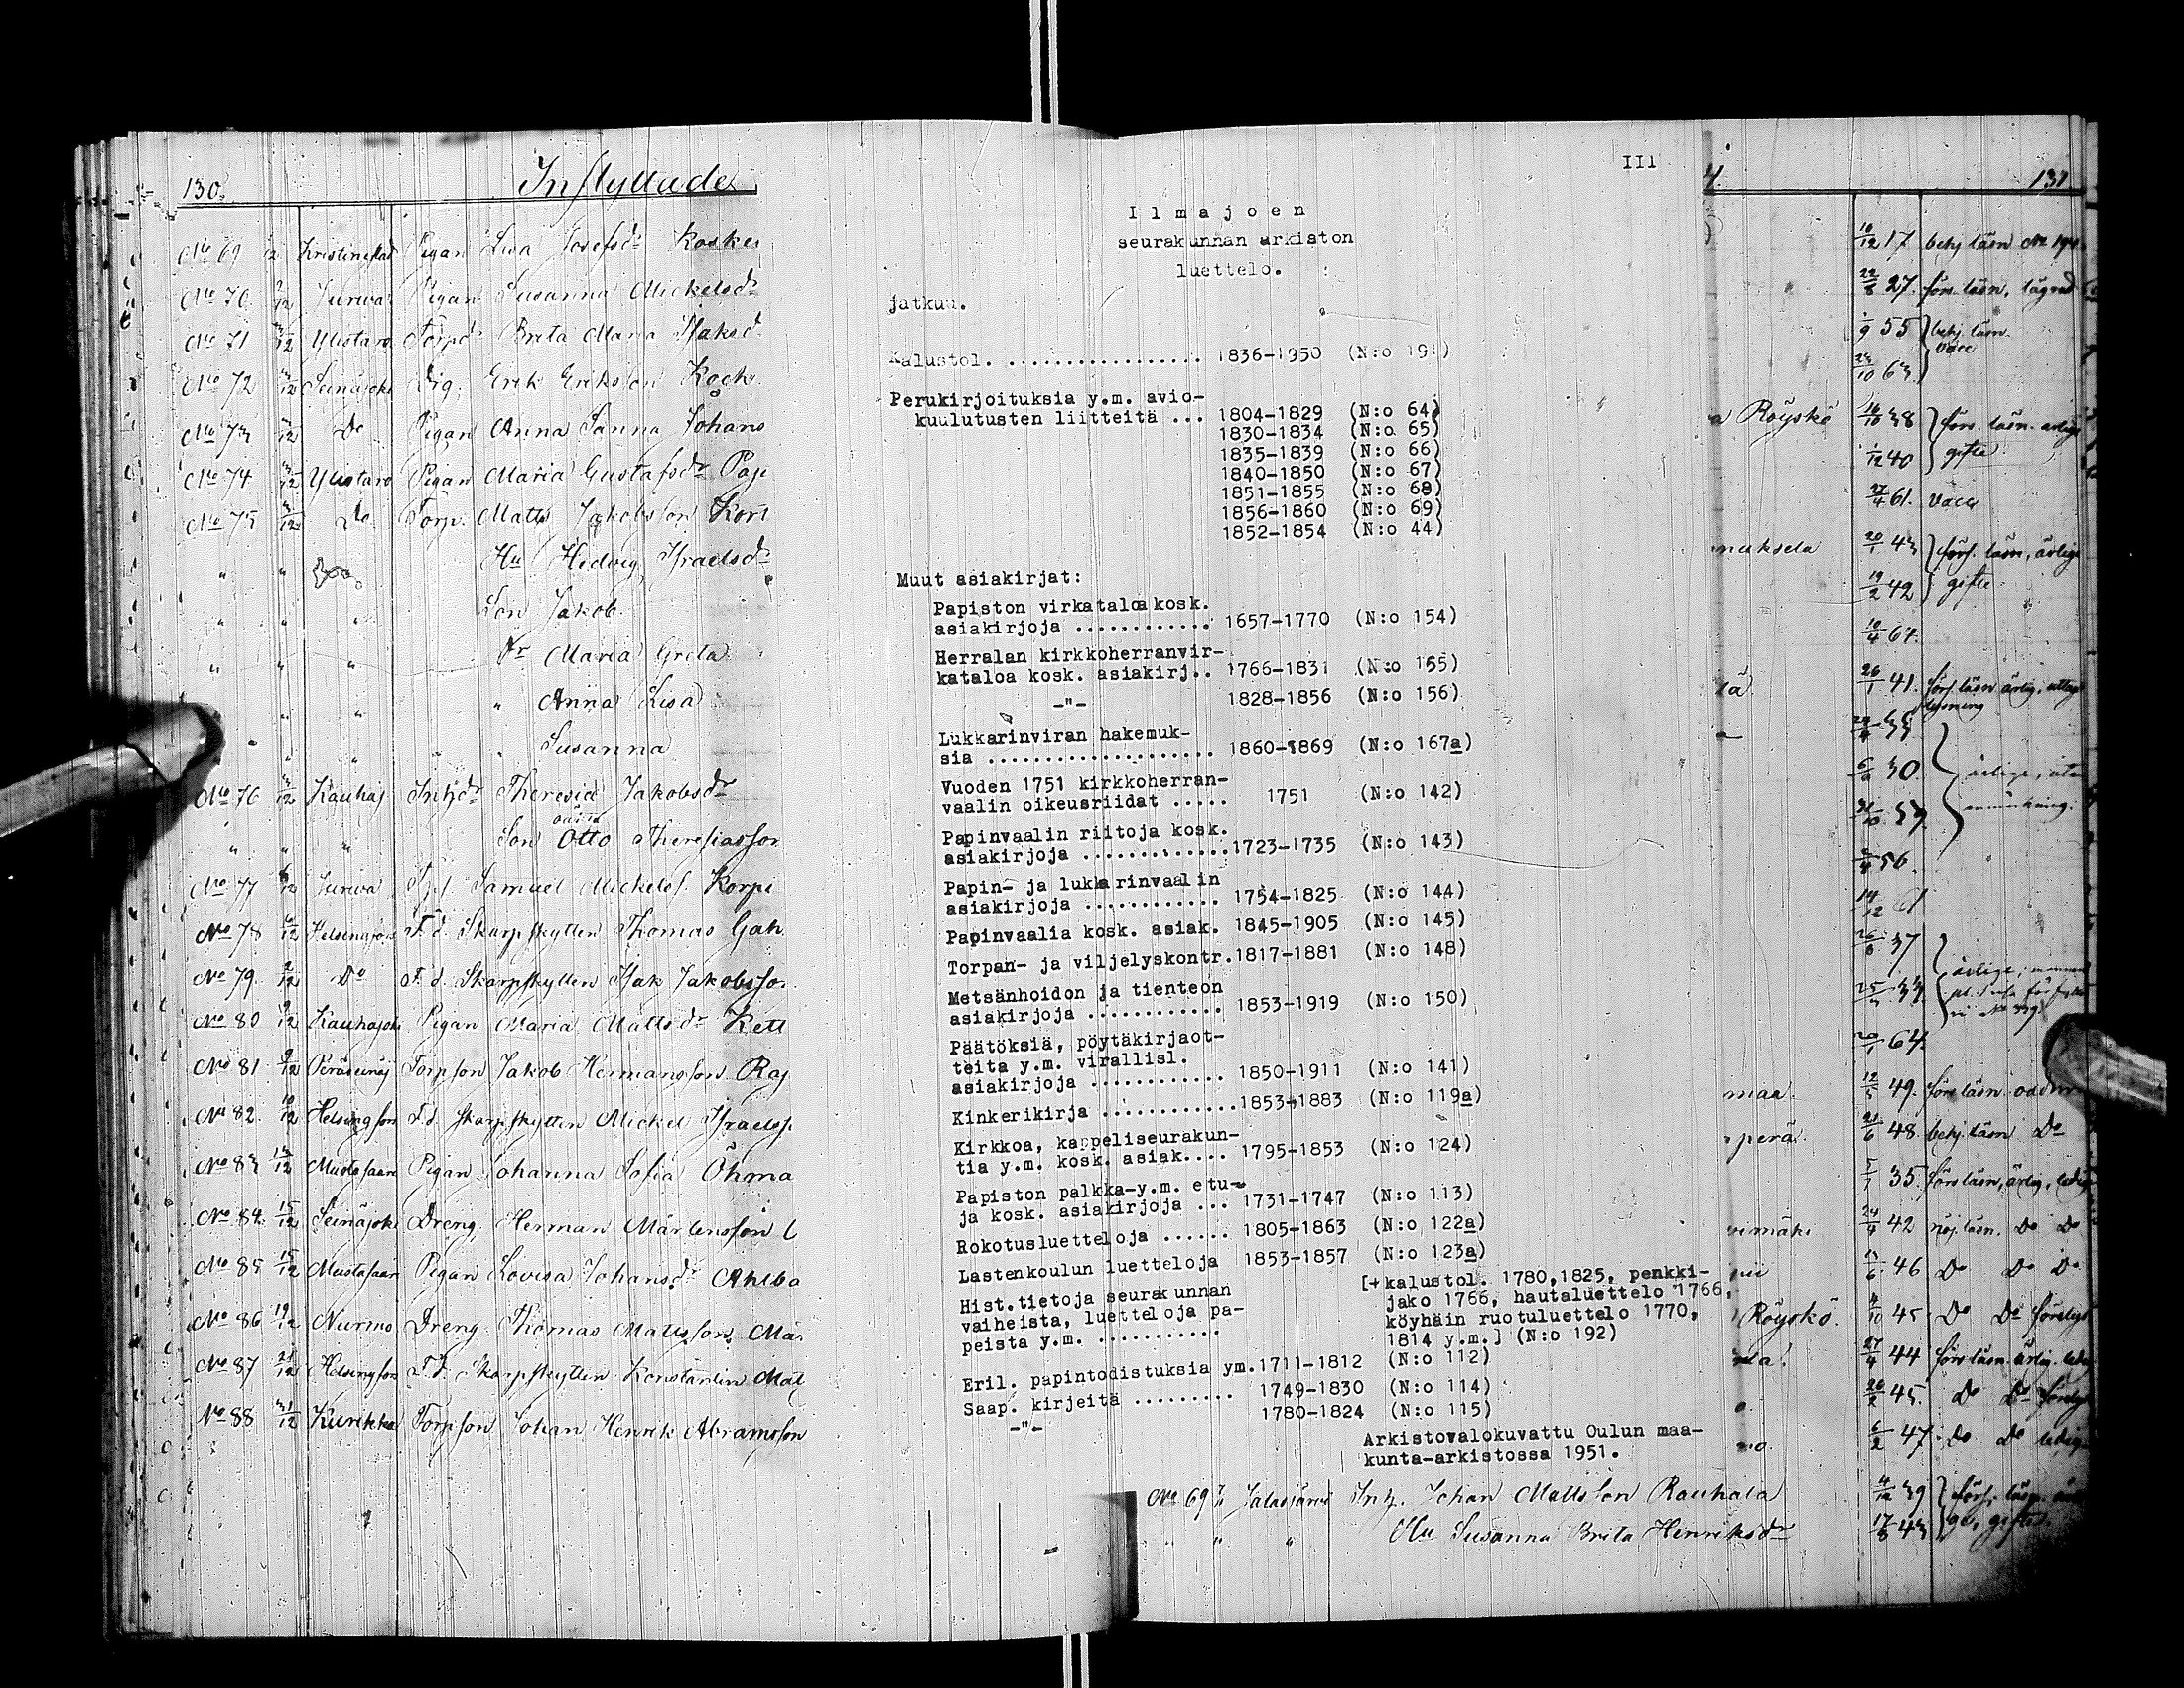 130.
Inflyttade
No 69 12 Kristinestad Pigan Lisa Josefsdr Koskes
No 70. 2/12 Jurwa Pigan Susanna Mickelsdr
No 71 Ylistaro Torpdr Brita Maria Isaksd
No 72 Seinäjoki Drg. Erik Eriksson Kock
No 73 Do Pigan Anna Sanna Johans
No 74 Ylistaro Pigan Maria Gustafsdr Paj
No 75 Do Torp. Matts Jakobsson Kort
" " Hu Hedvig Israelsdr
" " " Son Jakob.
" " " Dr Maria Greta
" " " Anna Lisa
" " " " Susanna
No 76 Kauhaj Inhdr Theresia Jakobsdr
" " " Son Otto Theresiasson
No 77 Jurwa Samuel Mickelss. Korpi
No 78 Helsingfors F.d. Skarpskytten Thomas Gah
No 79. 9/12 Do F.d. Skarpskytten Isak Jakobsson
No 80 9/12 Kauhajoki Pigan Maria Mattsdr Kett
No 81 9/12 Peräseinäj Torpson Jakob Hermansson Raj
No 82. 10/12 Helsingfors F.d. Skarpskytten Mickel Israelss.
No 83 Mustasaari Pigan Johanna Sofia Öhma
No 84. 15/12 Seinäjoki Dreng Herman Mårtensson
No 85 15/12 Mustasaari Pigan Lovisa Johansdr Ahlba
No 86 19/12 Nurmo Dreng Thomas Mattsson Mä
No 87 21/12 Helsingfors F.d. Skarpskytten Konstantin Mat
No 88 31/12 Kurikka Torpson Johan Henrik Abramsson
III
Ilmajoen
seurakunnan arkiston
luettelo.
jatkuu.
Kalustol. ................... 1836-1950 (N:o 191)
Perukirjoituksia y.m. avio-
kuulutusten liitteitä ... 1804-1829 (N:o 64)
1830-1834 (N:o 65)
1835-1839 (N:o 66)
1840-1850 (N:o 67)
1851-1855 (N:o 68)
1856-1860 (N:o 69)
1852-1854 (N:o 44)
Muut asiakirjat:
Papiston virkataloa kosk.
asiakirjoja ............ 1657-1770 (N:o 154)
Herralan kirkkoherranvir-
kataloa kosk. asiakirj.. 1766-1831 (N:o 155)
-"- 1828-1856 (N:o 156)
Lukkarinviran hakemuk-
sia .................... 1860-1869 (N:o 167a)
Vuoden 1751 kirkkoherran-
vaalin oikeusriidat ..... 1751 (N:o 142)
Papinvaalin riitoja kosk.
asiakirjoja .............1723-1735 (N:o 143)
Papin- ja lukkarinvaalin
asiakirjoja ............ 1754-1825 (N:o 144)
Papinvaalia kosk. asiak. 1845-1905 (N:o 145)
Torpan- ja viljelyskontr.1817-1881 (N:o 148)
Metsänhoidon ja tienteon
asiakirjoja ............ 1853-1919 (N:o 150)
Päätöksiä, pöytäkirjaot-
teita y.m. virallisl.
asiakirjoja ............ 1850-1911 (N:o 141)
Kinkerikirja ............1853-1883 (N:o 119a)
Kirkkoa, kappeliseurakun-
tia y.m. kosk. asiak.... 1795-1853 (N:o 124)
Papiston palkka-y.m. etu-
ja kosk. asiakirjoja ... 1731-1747 (N:o 113)
Rokotusluetteloja ...... 1805-1863 (N:o 122a)
Lastenkoulun luetteloja 1853-1857 (N:o 123a)
Hist.tietoja seurakunnan
vaiheista, luetteloja pa-
peista y.m. ...........
[+kalustol. 1780,1825, penkki-
jako 1766, hautaluettelo 1766,
köyhäin ruotuluettelo 1770,
1814 y.m.] (N:o 192)
Eril. papintodistuksia ym.1711-1812 (N:o 112)
Saap. kirjeitä ......... 1749-1830 (N:o 114)
-"- 1780-1824 (N:o 115)
Arkistovalokuvattu Oulun maa-
kunta-arkistossa 1951.
No 69 Jalasjärvi Inh. Johan Mattsson Rauhala
" " Hu Susanna Brita Henriksdr
4. 131
10/12 17 behj. läsn No 194.
22/8 27. förs. läsn, lägrad
1/9 55 behj. läsn.
vacc
10 63
a Röyskö 16/10 38 förs. läsn. ärlig
1/12 40 gifte
27/4 61. vacc
nuksela 20/1 43 förs. läsn, ärlige
19/2 42 gifte
10/4 64.
iä. 26/1 41. förs. läsn ärlig, uttag
lysning
33
6/9 30. ärlige, utan
anmärkning.
56.
14/12 61
26/8 37
33
20/1 64.
maa. 12/5 49. förs läsn.
perä. 21/6 48. behj. läsn Do
5/1 35. förs läsn, ärlig, ledig
imäki 24/9 42 nöj. läsn. Do Do
pii 46 Do Do Do
Röyskö. 4/10 45 Do Do förelyst
ela. 27/4 44 förs läsn. ärlig. ledig
20/2 45. Do Do förelys
no. 6/2 47. Do Do ledig
4/12 39 förs. läsn.
17/8 43 gifte